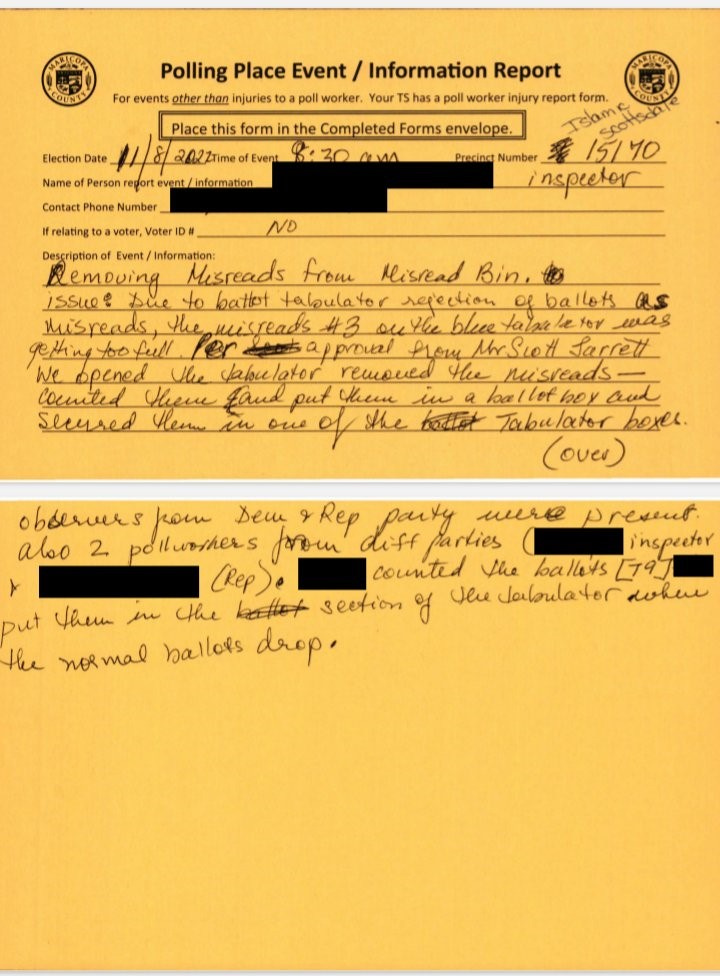 MARICOPA COUNTY
Polling Place Event / Information Report
MARICOPA COUNTY
For events other than injuries to a poll worker. Your TS has a poll worker injury report form.
Place this form in the Completed Forms envelope.
Islamic
Scottsdale
Election Date 11/8/2022 Time of Event 8:30 am Precinct Number 15170
Name of Person report event / information inspector
Contact Phone Number
If relating to a voter, Voter ID # NO
Description of Event / Information:
Removing Misreads from Misread Bin.
issue: Due to ballot tabulator rejection of ballots as
misreads, the misreads #3 on the blue tabulator was
getting too full. Per approval from Mr Scott Jarrett
We opened the tabulator removed the misreads —
counted them and put them in a ballot box and
Secured them in one of the Tabulator boxes.
(over)
observers from Dem & Rep party were present.
also 2 pollworkers from diff parties ( inspector
& (Rep). counted the ballots [79]
put them in the section of the tabulator where
the normal ballots drop.